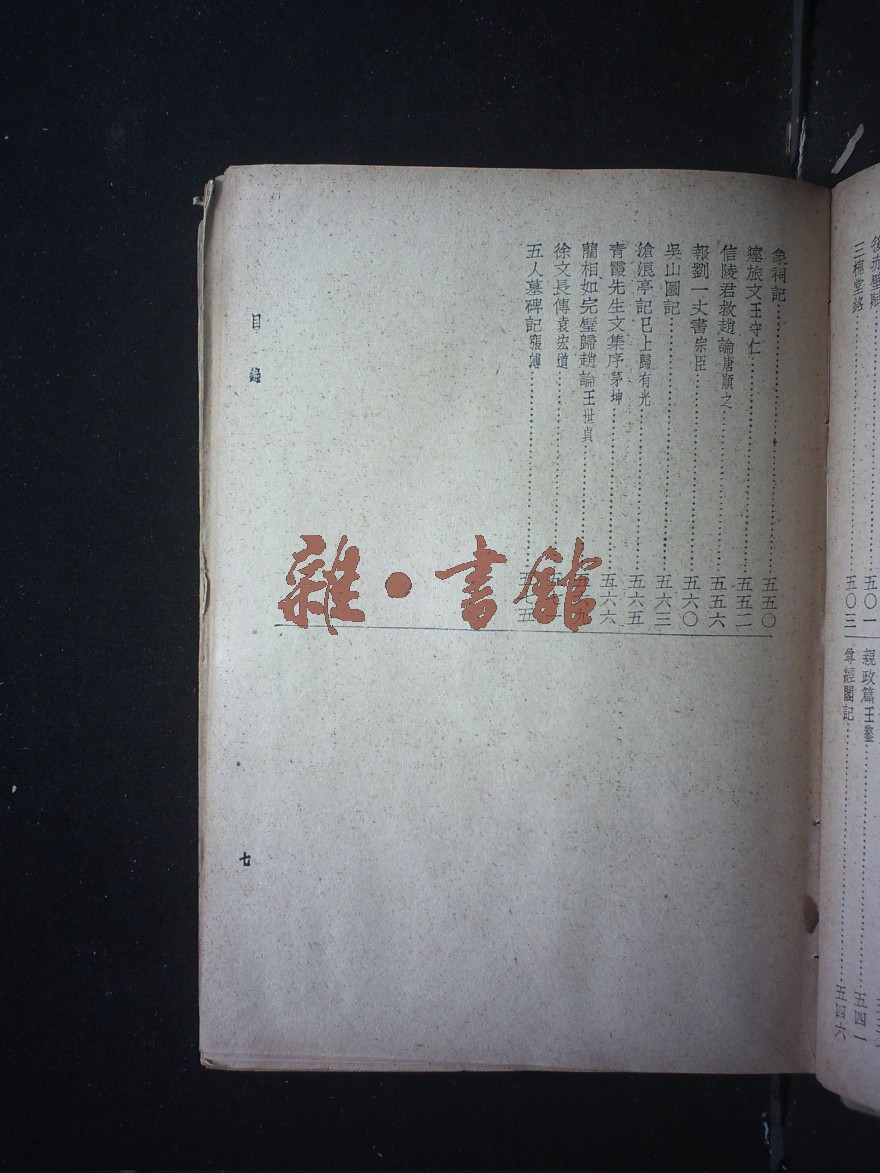 後赤壁賦……五〇一
三槐堂銘……五〇三
親政篇王鏊……五四一
尊經閣記……五四六
象祠記……五五〇
瘞旅文王守仁……五五二
信陵君救趙論唐順之……五五六
報劉一丈書宗臣……五六〇
吳山圖記……五六三
滄浪亭記已上歸有光……五六五
青霞先生文集序茅坤……五六六
藺相如完璧歸趙論王世貞
徐文長傳袁宏道
五人墓碑記張溥
目錄
七
雜·書館